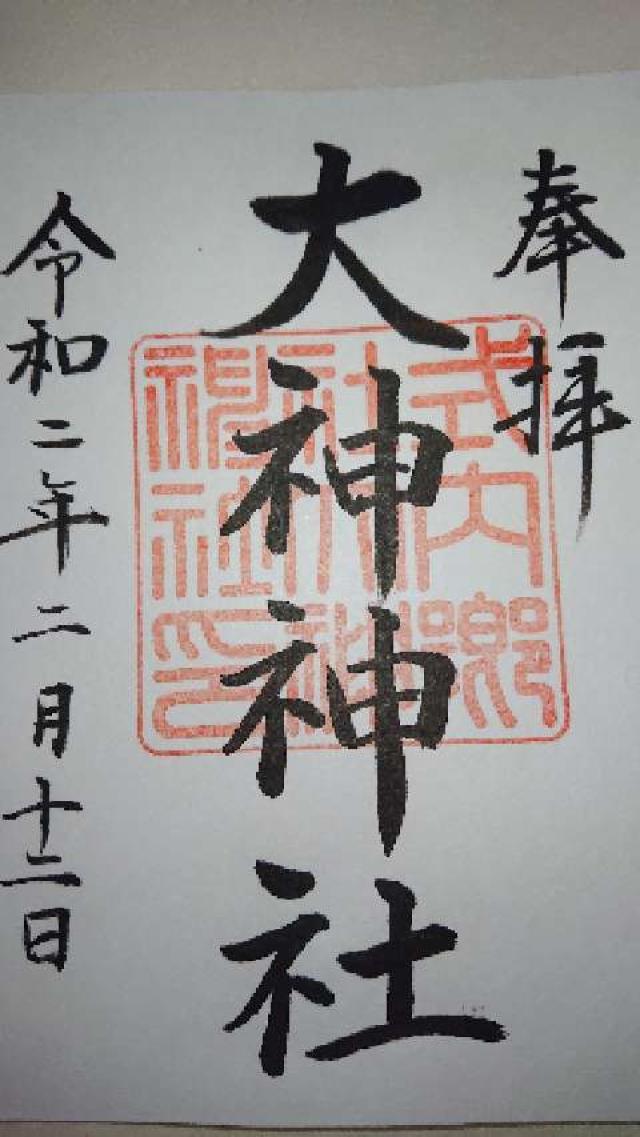 奉拝
大神神社
式内郷
社大神
神社印
令和二年二月十二日